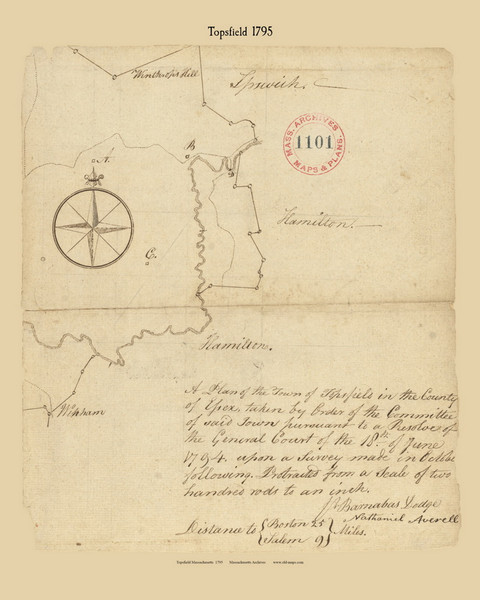 Topsfield 1795
Winthrops Hill
Ipswich.
MASS. ARCHIVES
1101
MAPS & PLANS.
A.
B
Hamilton.
C.
Hamilton.
Wenham
A Plan of the Town of Topsfield in the County
of Essex, taken by Order of the Committee
of said Town pursuant to a Resolve of
the General Court of the 18th of June
1794. upon a Survey made in October
following. Protraited from a Scale of two
hundred rods to an inch.
Barnabas Dodge
Nathaniel Averell
Distance to { Boston 25 } Miles.
{ Salem 9 }
Topsfield Massachusetts, 1795 Massachusetts Archives www.old-maps.com